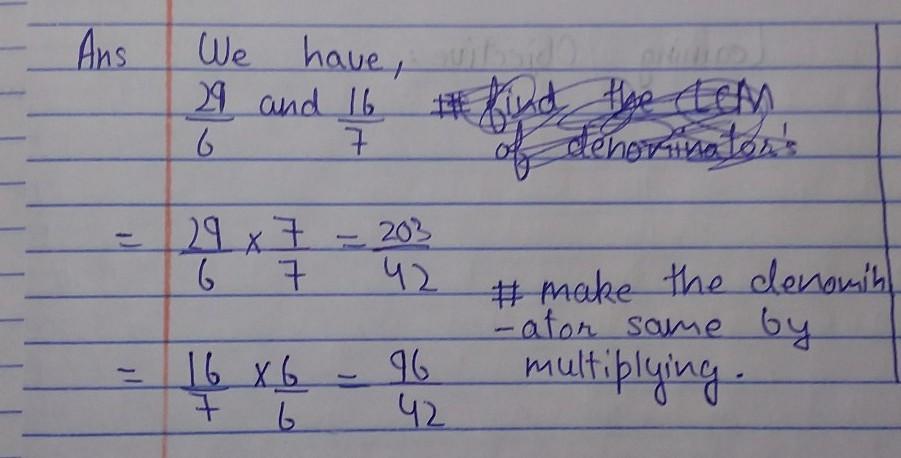 Ans We have,
29/6 and 16/7 # find the LCM
of denominator's
= 29/6 × 7/7 = 203/42
# make the denomin
-ator same by
= 16/7 × 6/6 = 96/42 multiplying.